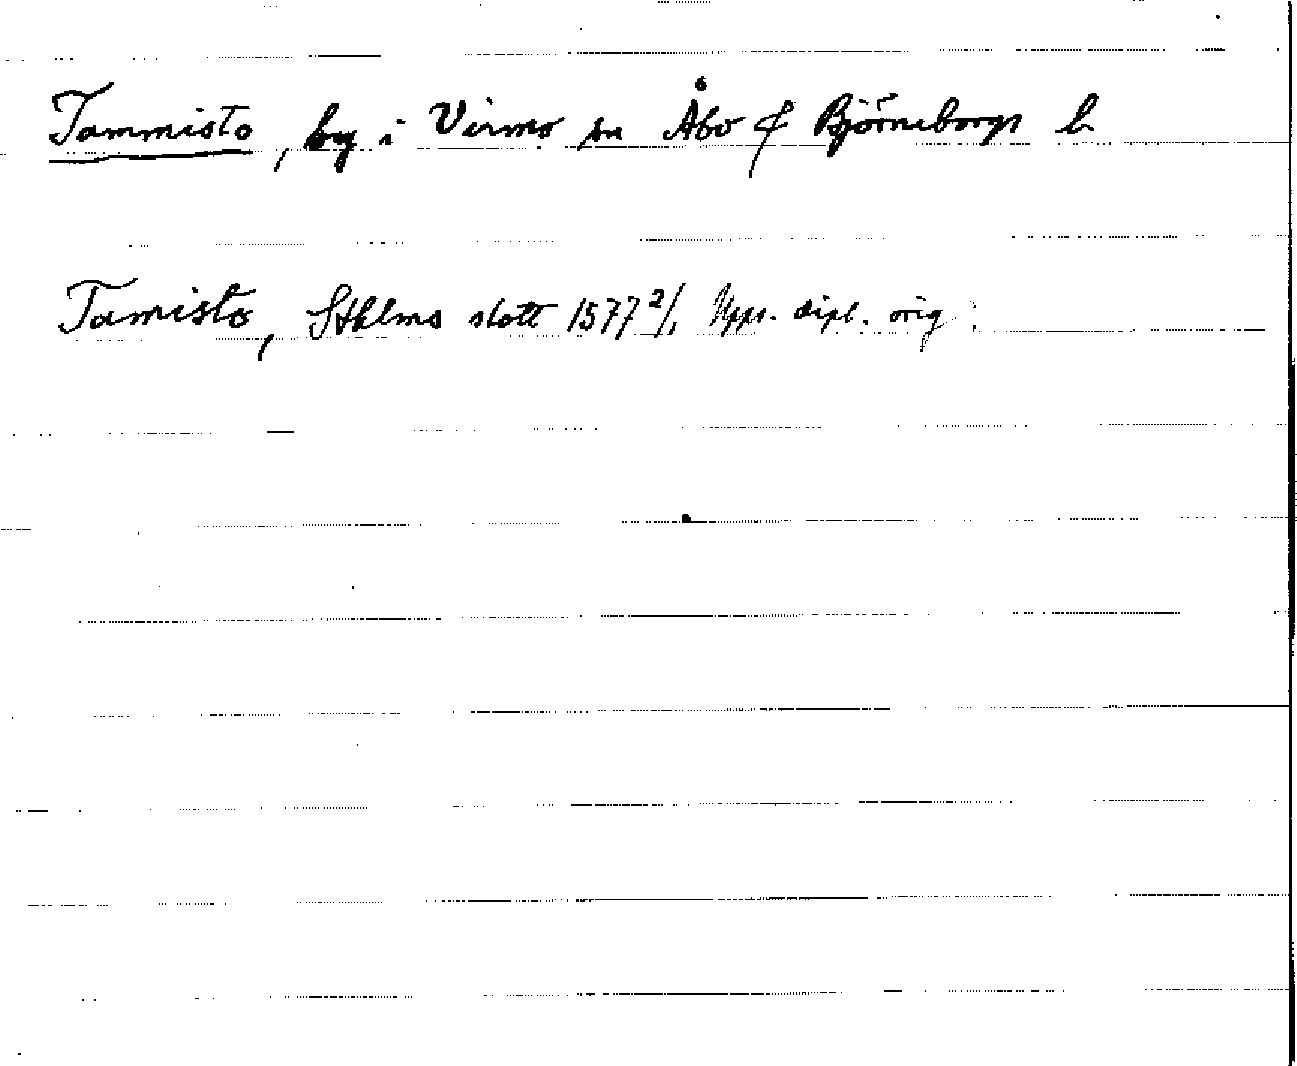 Tammisto, by i Virmo sn Åbo & Björneborgs l.
Tamisto, Sthlms slott 1577 2/1 Upps. dipl. orig.